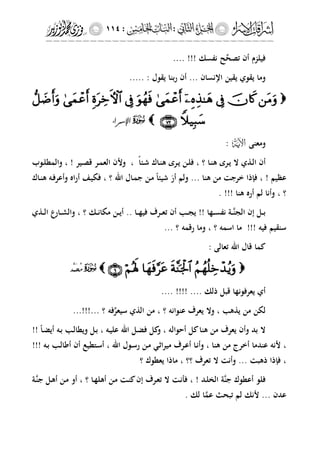 إشراقات الإسراء الجزء الثاني : الباب الخامس : ١١٤
فيلزم أن تصحّح نفسك !!! ....
وما يقوي يقين الإنسان ... أن ربنا يقول : .....
﴿ وَمَن كَانَ فِي هَٰذِهِۦٓ أَعْمَىٰ فَهُوَ فِي ٱلْأٓخِرَةِ أَعْمَىٰ وَأَضَلُّ
سَبِيلًا ﴾ الإسراء
ومعنى الآية :
أن الذي لا يرى هنا ؟ ، فلن يرى هناك شئاً ، ولأن العمر قصير ! ، والمطلوب
عظيم ! ، فإذا خرجت من هنا ... ولم أرَ شيئاً من جمال الله ؟ ، فكيف أراه وأعرفه هناك
؟ ، وأنا لم أره هنا !!! .
بل إن الجنَّة نفسها !! يجب أن تعرف فيها .. أين مكانك ؟ ، والشارع الذي
ستقيم فيه !!! ما اسمه ؟ ، وما رقمه ؟ ...
كما قال الله تعالى :
﴿ وَيُدْخِلُهُمُ ٱلْجَنَّةَ عَرَّفَهَا لَهُمْ ﴾ محمد
أي يعرفونها قبل ذلك .... !!!! ....
لكن من يذهب ، ولا يعرف عنوانه ؟ ، من الذي سيعرِّفه ؟ ...!!!...
لا بد وأن يعرف من هنا كل أحواله ، وكل فضل الله عليه ، بل ويطالب به أيضاً !!
، لأنه عندما أخرج من هنا ، وأنا أعرف ميراثي من رسول الله ، أستطيع أن أطالب به !!!
، فإذا ذهبت ... وأنت لا تعرف ؟؟ ، ماذا يعطوك ؟
فلو أعطوك جنَّة الخلد ! ، فأنت لا تعرف إن كنت من أهلها ؟ ، أو من أهل جنَّة
عدن ... لأنك لم تبحث عمَّا لك .